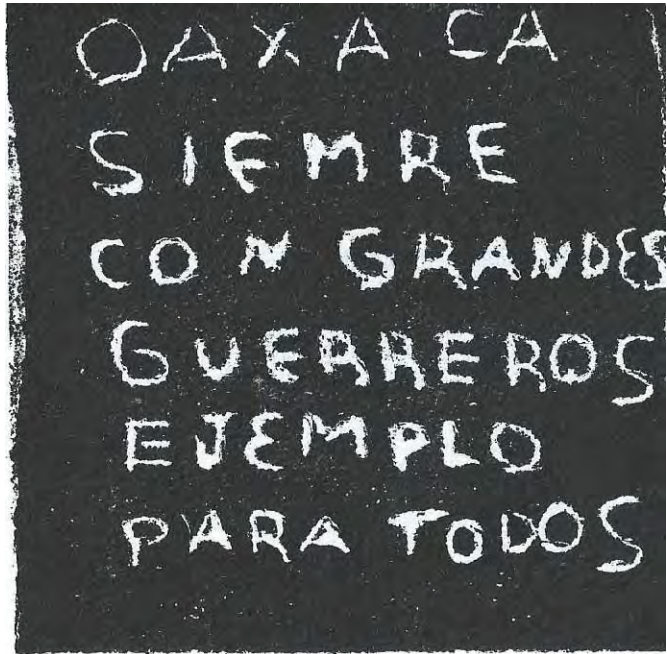 OAXACA
SIEMRE
CON GRANDES
GUERREROS
EJEMPLO
PARA TODOS